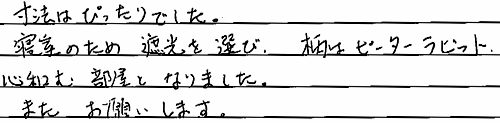 寸法はぴったりでした。
寝室のため 遮光を選び、柄はピーターラビット、
心和む部屋となりました。
また お願いします。